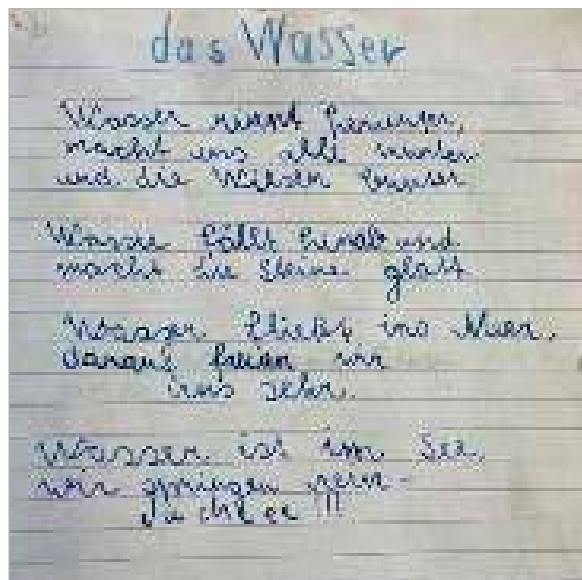 das Wasser
Wasser rinnt herunter,
macht uns alle munter
und die Wiesen bunter
Wasser fällt hinab und
macht die Steine glatt
Wasser fließt ins Meer,
darauf freuen wir
uns sehr.
Wasser ist im See,
wir springen rein -
!!!